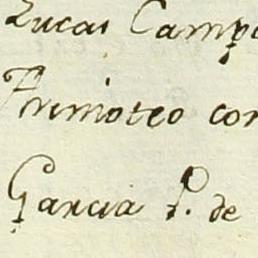 Lucas Campo
Thimoteo con
Garcia P. de